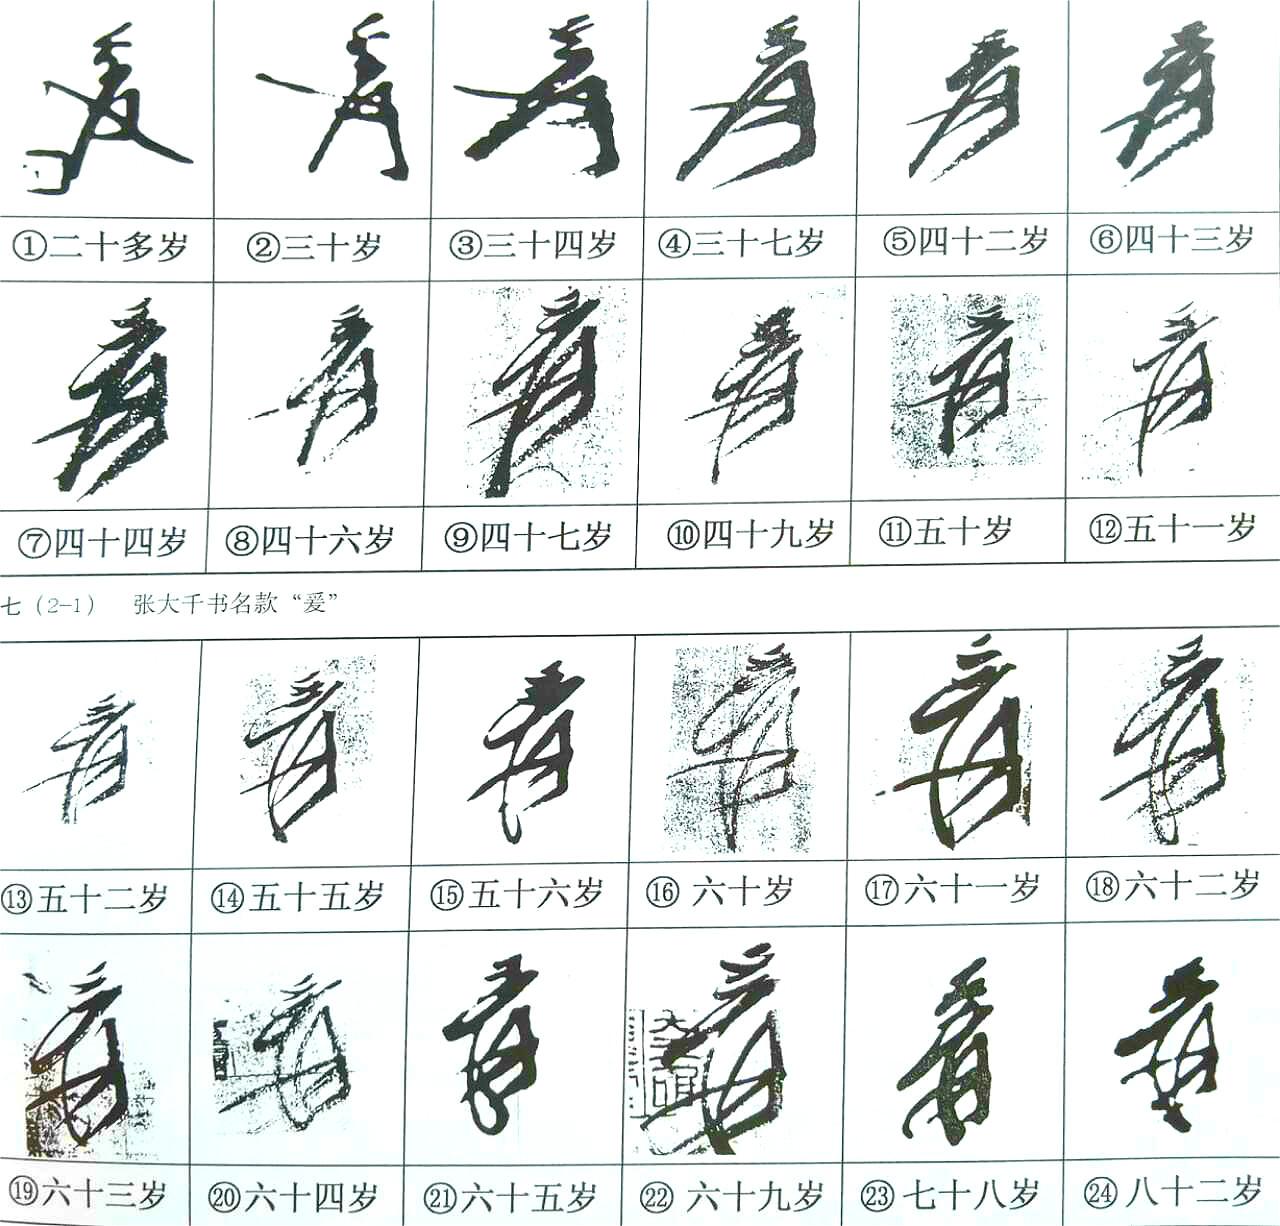 ①二十多岁 ②三十岁 ③三十四岁 ④三十七岁 ⑤四十二岁 ⑥四十三岁
⑦四十四岁 ⑧四十六岁 ⑨四十七岁 ⑩四十九岁 ⑪五十岁 ⑫五十一岁
七（2-1） 张大千书名款“爰”
⑬五十二岁 ⑭五十五岁 ⑮五十六岁 ⑯六十岁 ⑰六十一岁 ⑱六十二岁
⑲六十三岁 ⑳六十四岁 ㉑六十五岁 ㉒六十九岁 ㉓七十八岁 ㉔八十二岁